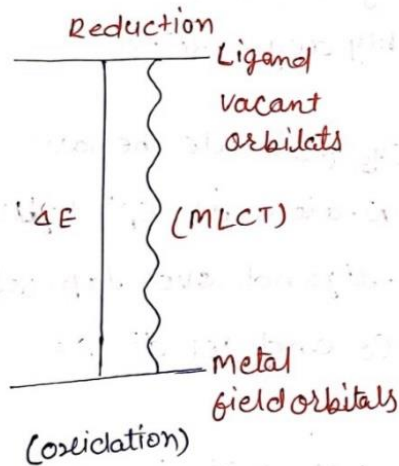 Reduction
Ligand
vacant
orbitals
ΔE
(MLCT)
Metal
field orbitals
(oxidation)